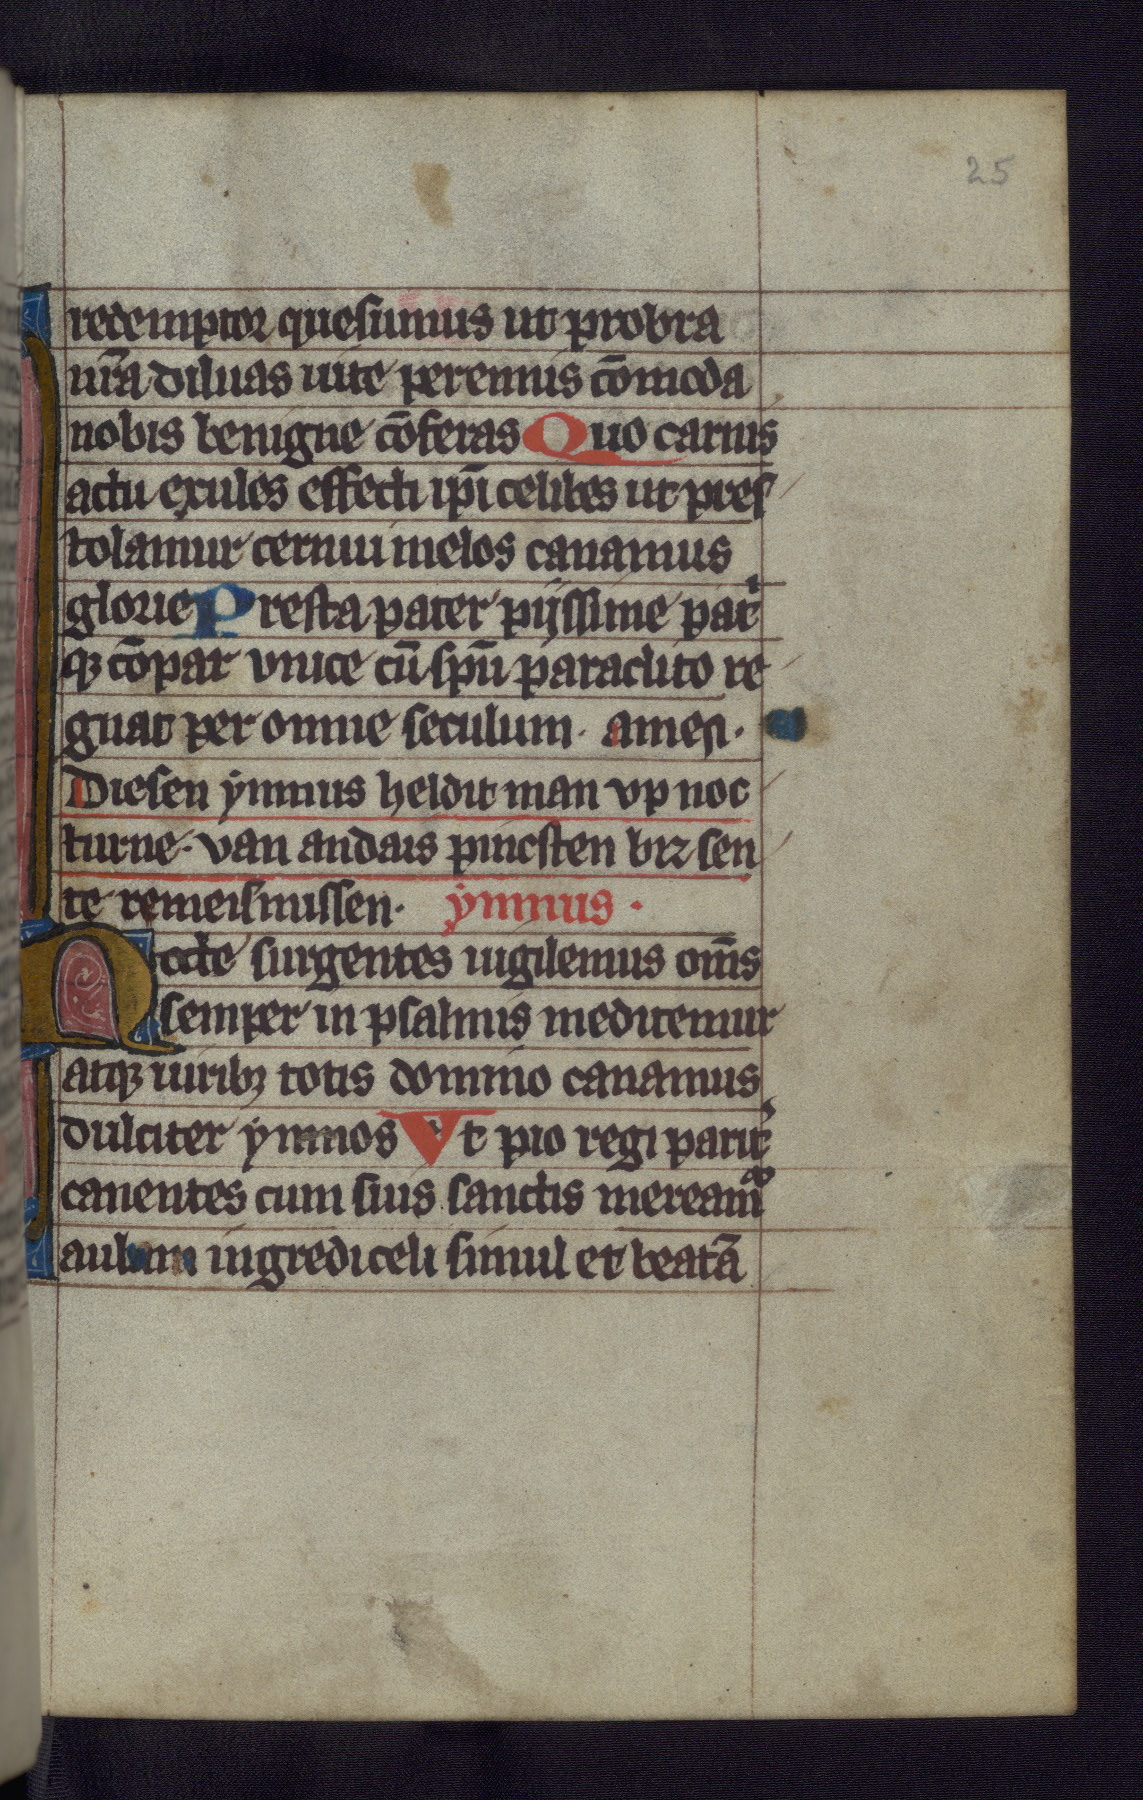 25
redemptor quesumus ut probra
nr̄a diluas uite perennis cōmoda
nobis benigne cōferas Quo carnis
actu exules effecti ip̄i celibes ut pres
tolamur cernui melos canamus
glorie Presta pater pijssime pat
qꝫ cōpar vnice cū spū paraclito re
gnat per omne seculum · amen ·
Diesen ẏmnus heldit man vp noc
turne · van andais pincsten biz sen
te remeismissen · ẏmnus ·
Nocte surgentes uigilemus om̄s
semper in psalmis meditemur
atqꝫ uiribꝫ totis domino canamus
dulciter ymnos Vt pio regi parit̾
canentes cum suis sanctis meream̾
aulam ingredi celi simul et beatā